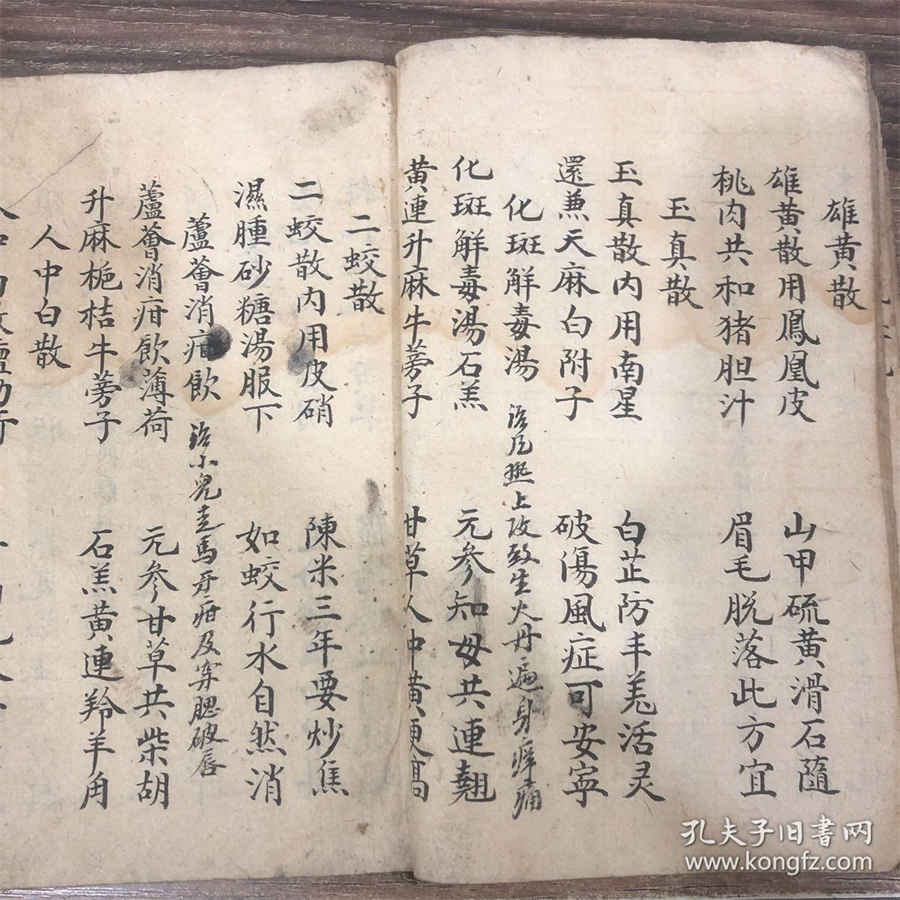 雄黄散
雄黄散用鳳凰皮 山甲硫黄滑石隨
桃肉共和猪胆汁 眉毛脱落此方宜
玉真散
玉真散内用南星 白芷防丰羌活灵
還兼天麻白附子 破傷風症可安寧
化斑解毒湯 治风热上攻致生火丹遍身痒痛
化斑解毒湯石羔 元参知母共連翹
黄連升麻牛蒡子 甘草人中黄更高
二蛟散
二蛟散内用皮硝 陳米三年要炒焦
濕腫砂糖湯服下 如蛟行水自然消
蘆薈消疳飲 治小児走馬牙疳及穿腮破唇
蘆薈消疳飲薄荷 元参甘草共柴胡
升麻桅桔牛蒡子 石羔黄連羚羊角
人中白散
孔夫子旧书网
www.kongfz.com